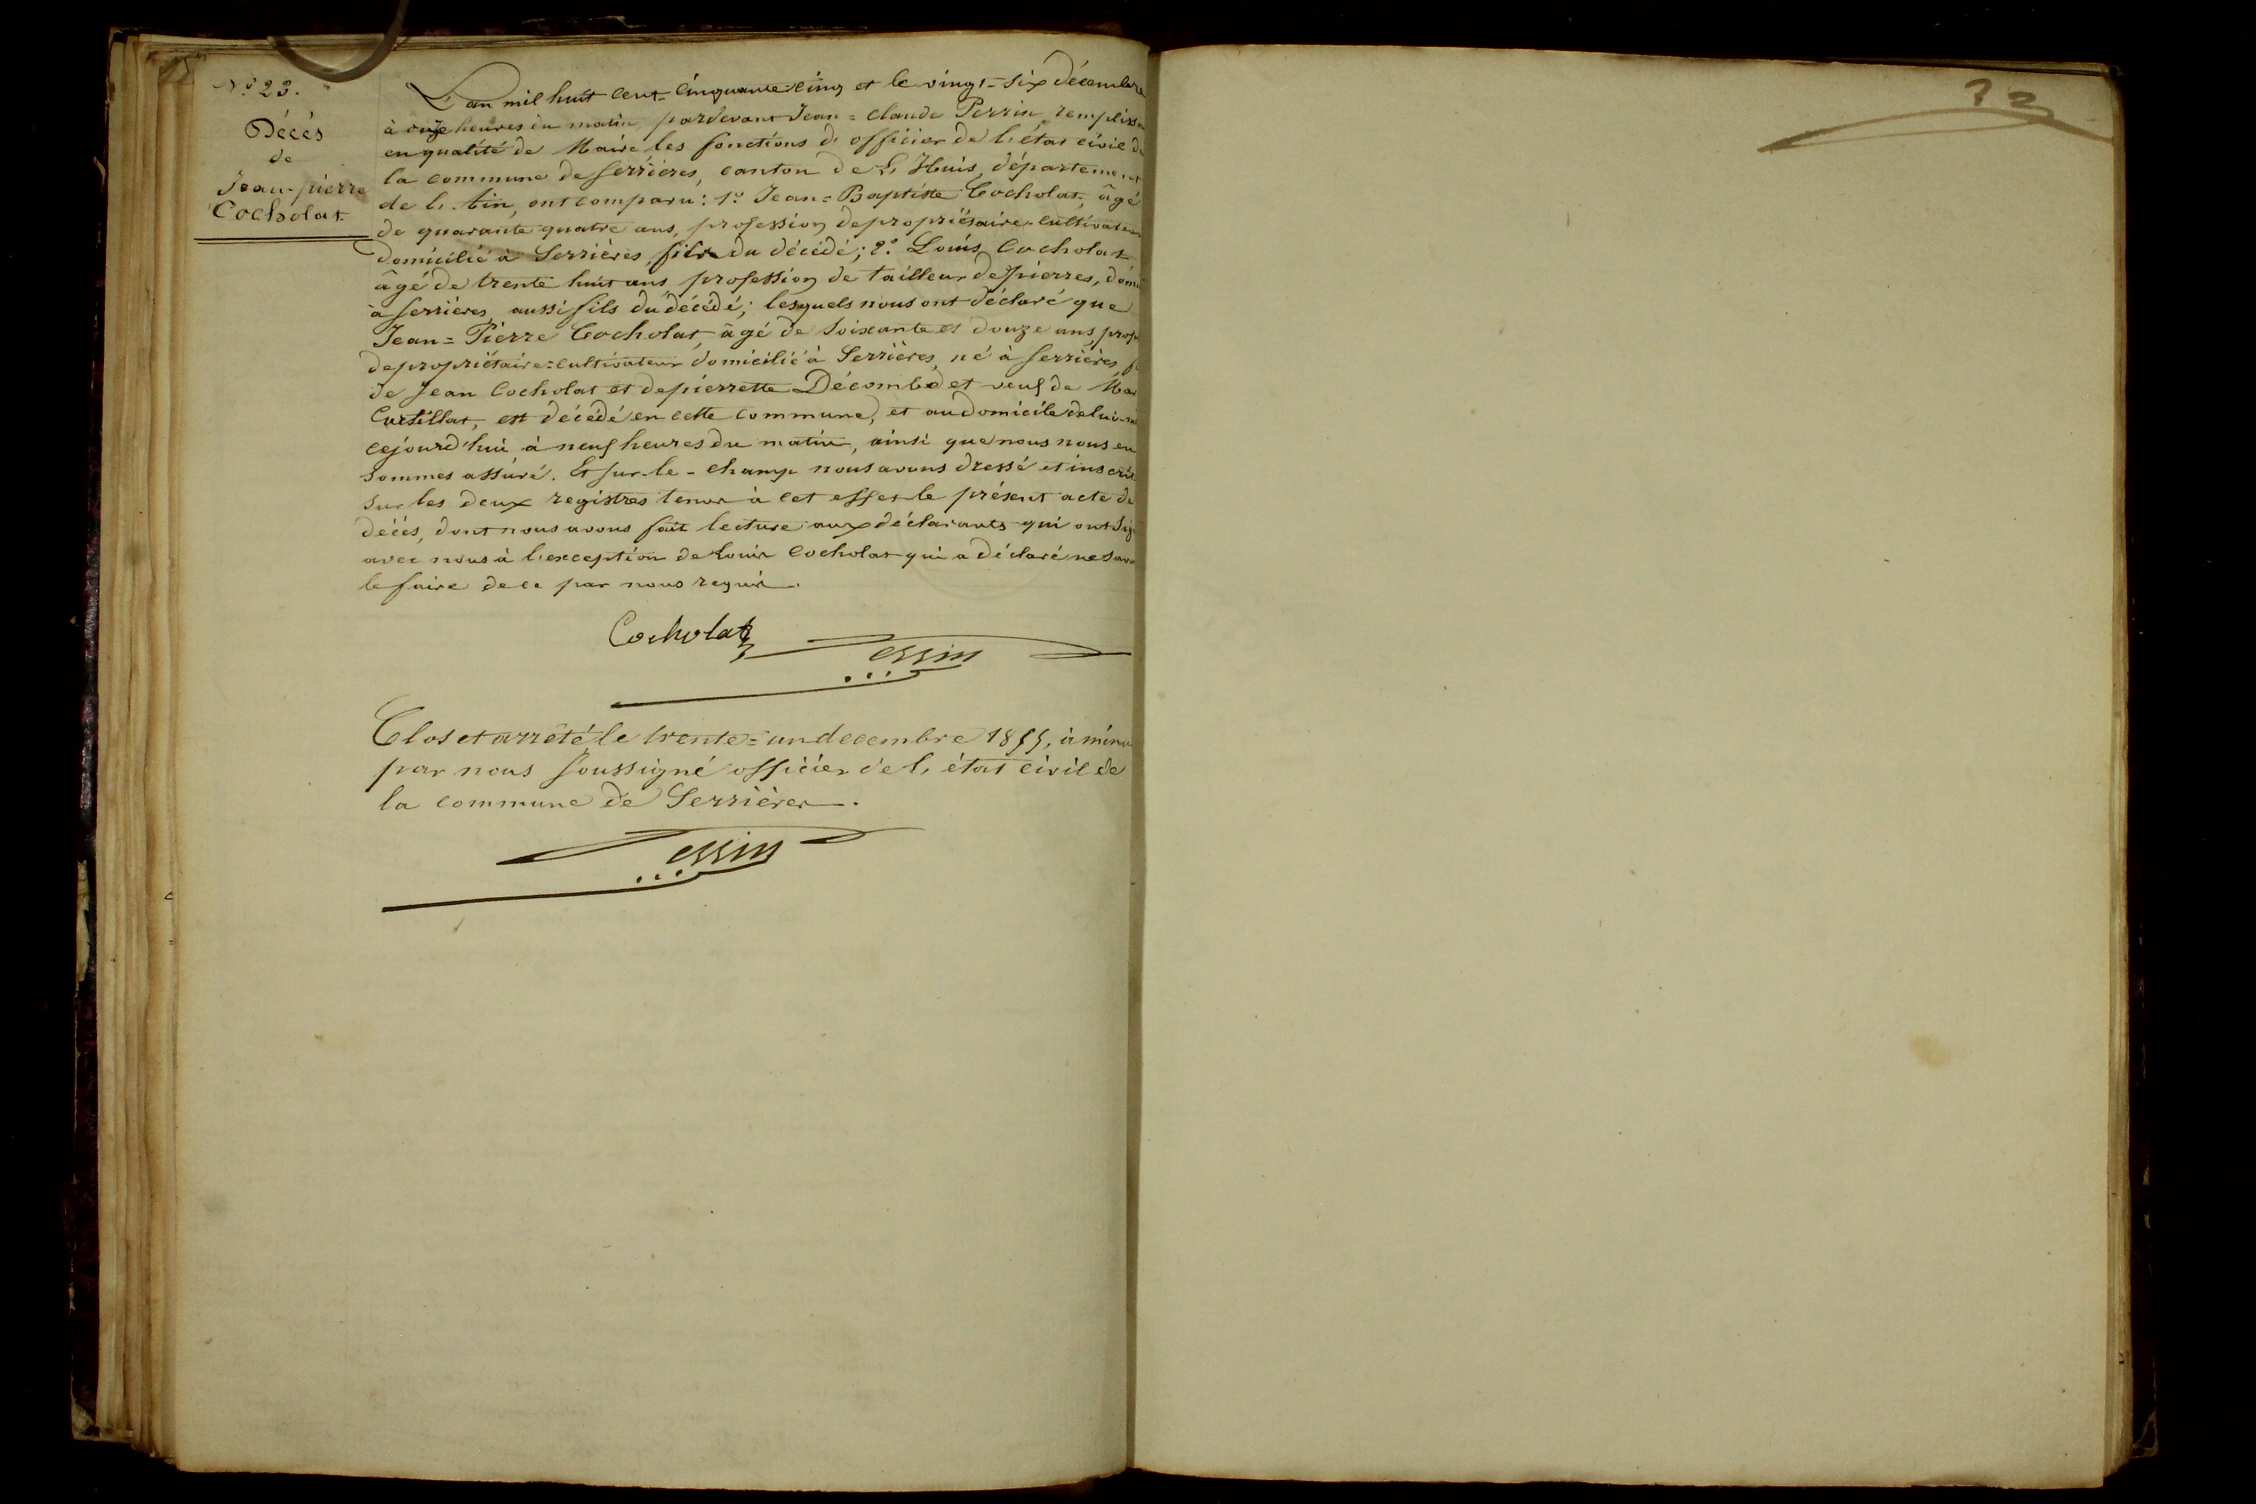 N.o 23.
Décès
de
Jean-pierre
Cocholat
L'an mil huit cent cinquante-cinq et le vingt-six décembre
à onze heures du matin, pardevant Jean=claude Perrin, rempliss
en qualité de Maire les fonctions d'officier de l'état civil de
la commune de serrières, canton de L'Huis, département
de l'Ain, ont comparu: 1.o Jean=Baptiste Cocholat, âgé
de quarante quatre ans, profession de propriétaire-cultivateur
domicilié à Serrières, fils du décédé; 2.o Louis Cocholat
âgé de trente huit ans profession de tailleur de pierres, domi
à serrières, aussi fils du décédé; lesquels nous ont déclaré que
Jean=Pierre Cocholat, âgé de soixante et douze ans, prof
de propriétaire=cultivateur domicilié à Serrières, né à serrières, f
de Jean Cocholat et de pierrette Décombe et veuf de Mar
Curtillat, est décédé en cette commune, et au domicile de lui-m
cejourd'hui à neuf heures du matin, ainsi que nous nous en
sommes assuré. Et sur-le-champ nous avons dressé et inscrit
sur les deux registres tenus à cet effet le présent acte de
décès, dont nous avons fait lecture aux déclarants qui ont sig
avec nous à l'exception de Louis Cocholat qui a déclaré ne sav
le faire de ce par nous requis.
Cocholat
Perrin
Clos et arrêté le trente=un decembre 1855, à minu
par nous soussigné officier de l'état civil de
la commune de Serrières.
Perrin